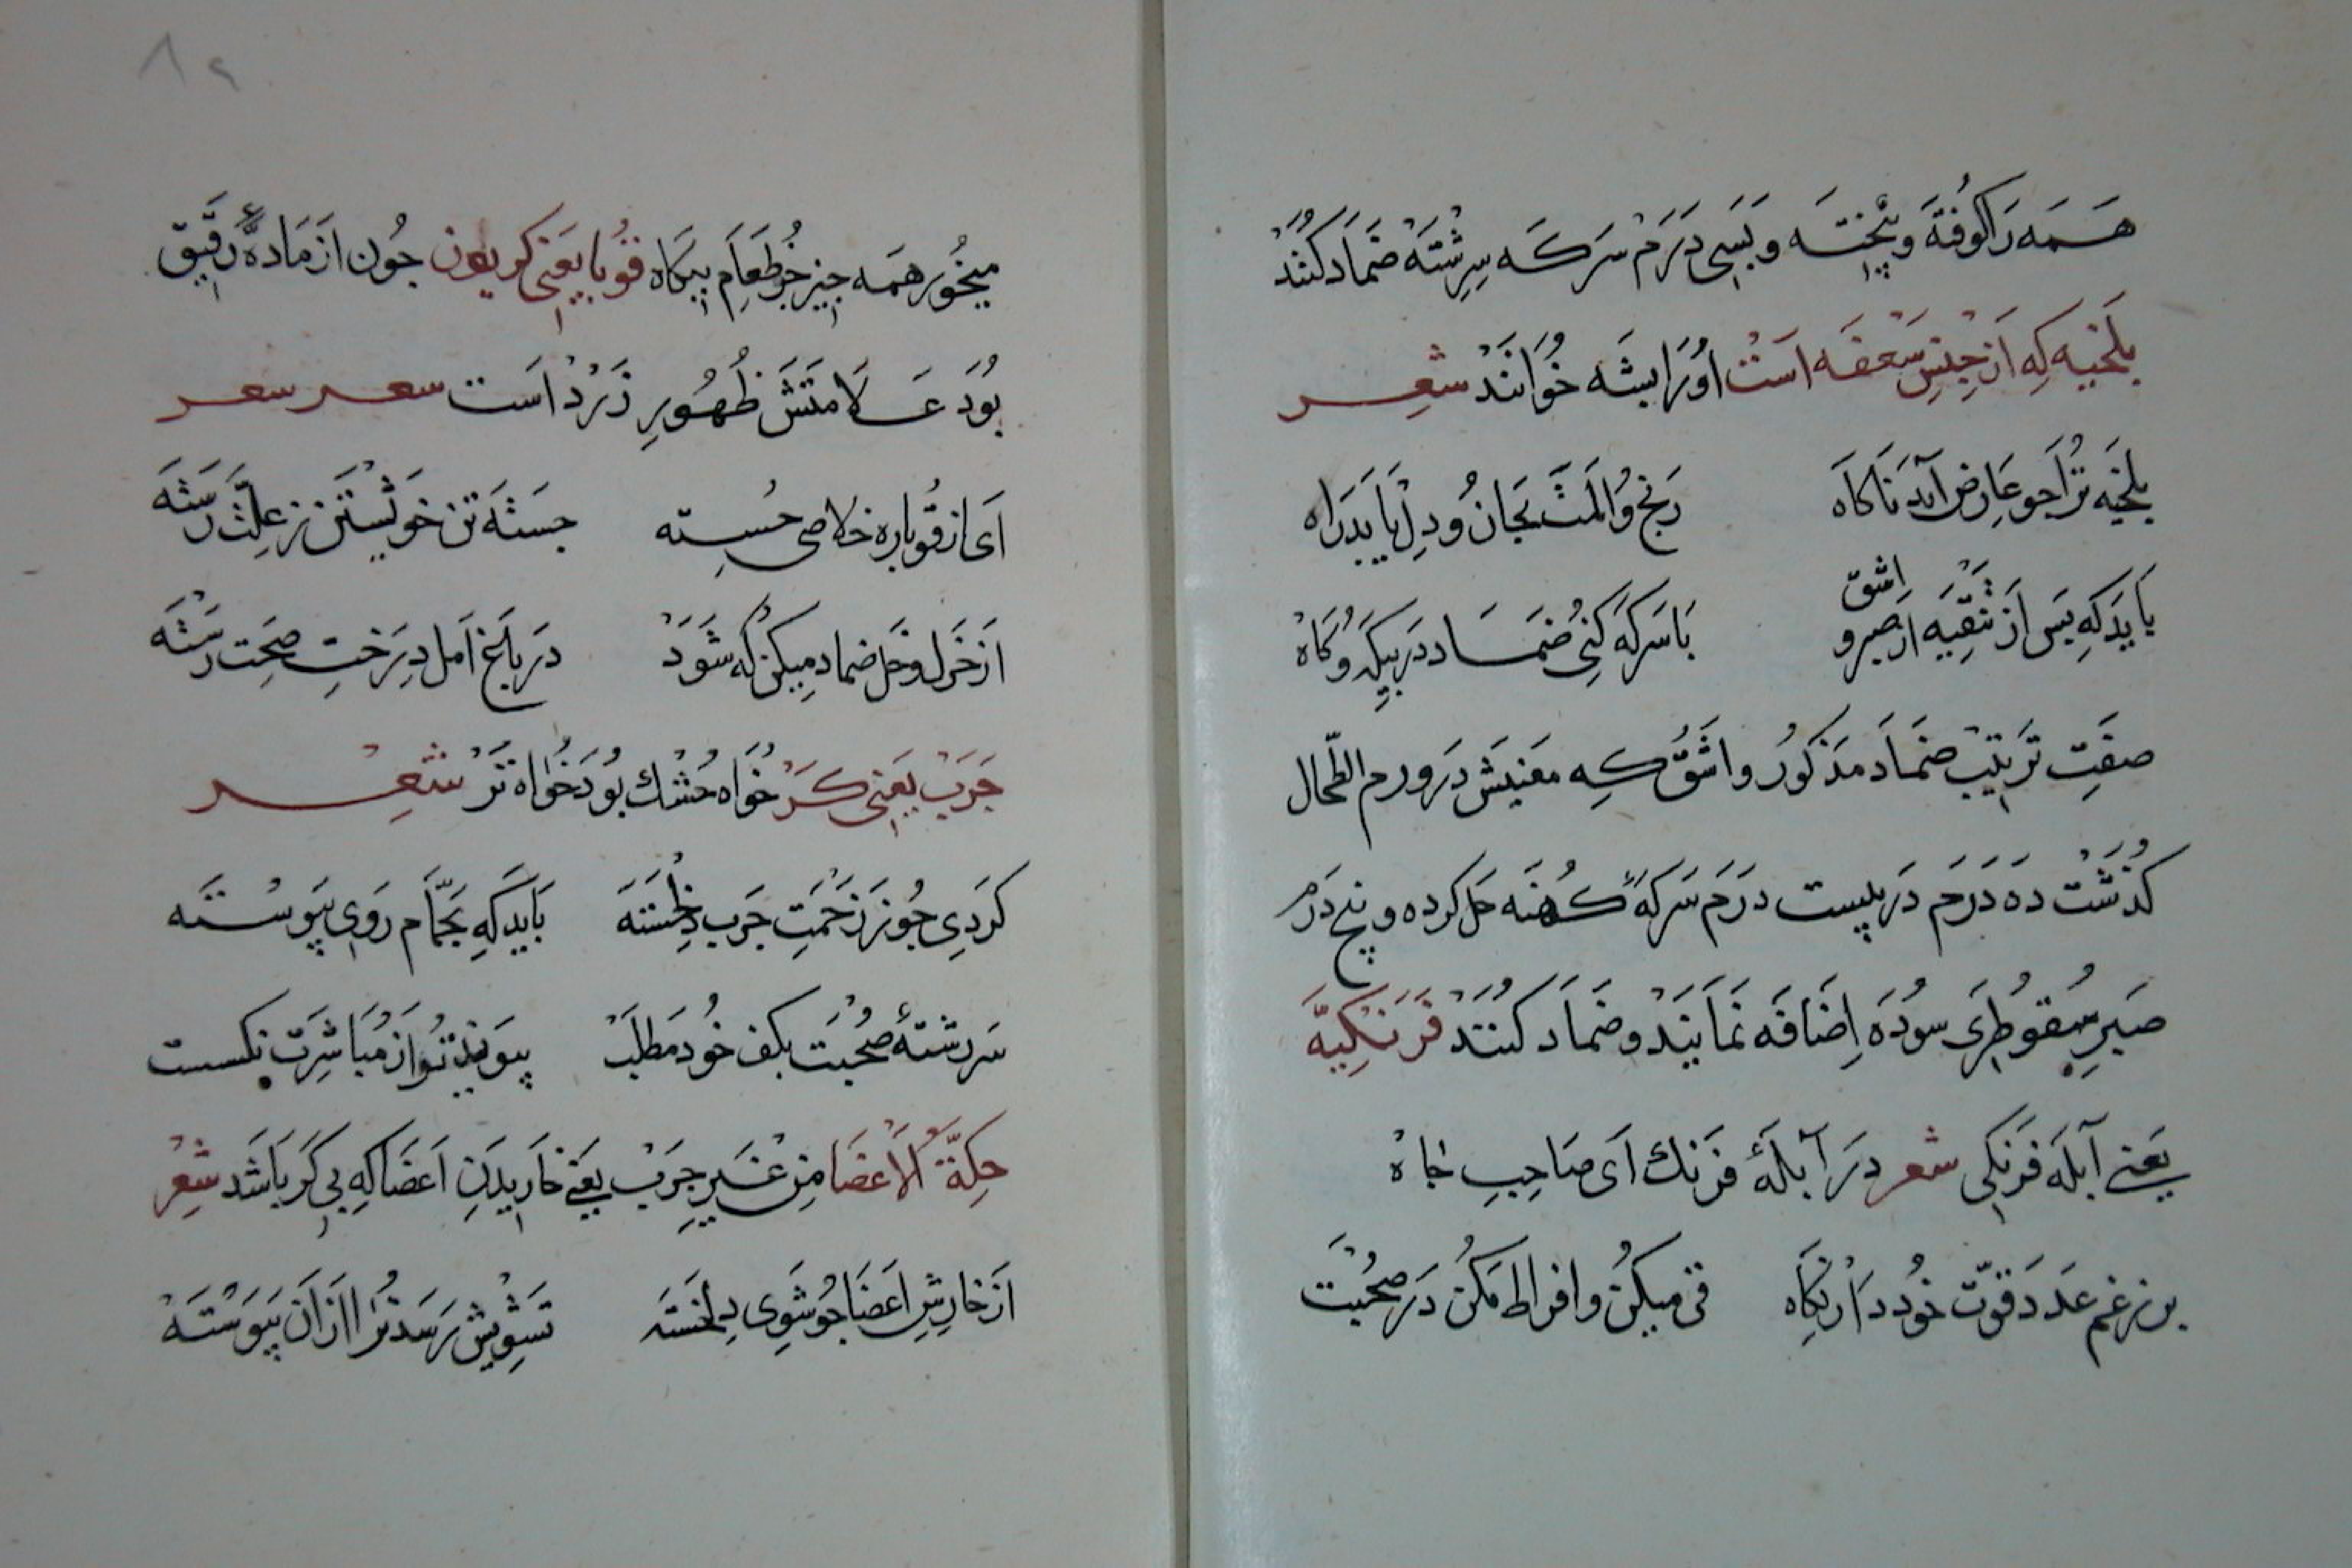 هَمَه رَا كُوفتَه وَ پُخْتَه وبَسِى دَرَمْ سَركَه سِرِشْتَه ضَمَاد كُنَنْدْ
بلَخيه كِه اَز جِنسِ سَعفَه اسَتْ اورَا پشَه خُوَانَنْدْ شعِر
بلخيَه تُرا جو عَارِض آيَد نَاكَاه رَنج وُ الَمَت بَجَان وُ دِل يَابَد رَاه
بَايَد كِه پَس اَز تَنْقِيَه از صبر و اشَق بَا سَركَه كُنِى ضَمَاد دَر بيكَه وُ كَاهْ
صِفَتِ تَرتيبْ ضَمَاد مَذكُورْ و اشَقْ كِه مَعنيَش دَر ورم الطّحال
كُذَشْتْ دَه دَرَم دَر بيست دَرَم سَركَهٔ كُهنَه حَل كرده و پنج دَرَم
صَبِرِ سُقوطُرِى سوُدَه اِضَافَه نَمَايَنْد و ضَمَاد كُنَنْد فَرَنْكِيَّه
يَعَنى آبلَه فَرَنكِى شعر دَر آبلَهٔ فرَنك اَى صَاحِبِ جاهْ
بر زغم عَدد قوّت خُود دَار نِكَاه قى ميكُن و افراط مَكُن دَر صُحْبَت
٨٩
ميخُور همَه جيز جُز طَعَام بيكَاه قوُبا يعَنى كريون جُون اَز مَادهٔ رَقيق
بُوَد عَلَامَتَش ظُهُورِ زَرْد اَست سعر سعر
اَى از قُوبا ره خلاصى جُسته جسَته تَن خوَيشتَن زِ علِّت رَسْتَه
اَز خَردَل و خَل ضماد ميكُن كُه شَوَدْ دَر باغ اَمل دِرَختِ صِحَت رَستَه
جَرَبْ يَعَنى كَرْ خُوَاه خُشْك بُوَد خُوَاه تَرْ شعِر
كردى جُو زِ زحْمَتِ جَرب دِل خَستَه بَايَد كِه بَحَمَّام رَوى پيَوستَه
سَر رشتهٔ صُحْبَت بكف خُود مَطَلَبْ پيوَند تُو اَز مُبَاشِرَت بكسست
حِكَّةُ الاَعضَا مِن غَيرِ جَرَبْ يعَنى خَاريدَنِ اَعضَا كه بى كَر بَاشَد شعِر
اَز خارِشِ اَعضَا جُو شَوِى دِلخَستَه تَشوِيش رَسَد تُرا اَز آن پيَوستَه